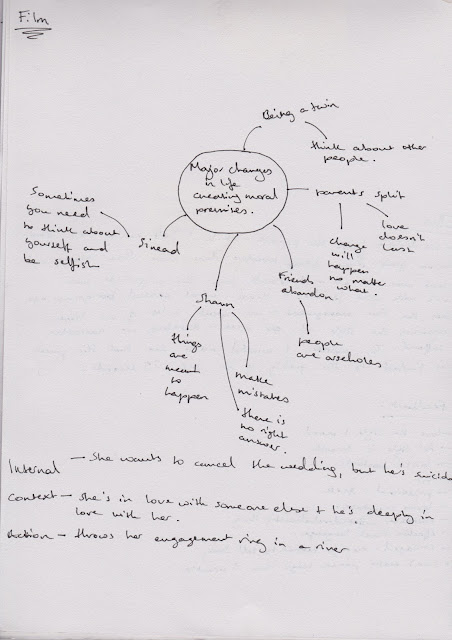 Film
Being a twin
think about other
people.
Major changes
in life
creating moral
premises.
parents split
love
doesn't
last
change
will
happen
no matter
what.
Friends
abandon
people
are arseholes
Shaun
things
are
meant
to
happen
make
mistakes
there is
no right
answer.
Sinead
Sometimes
you need
to think about
yourself and
be selfish
Internal – She wants to cancel the wedding, but he's suicida
Context – she's in love with someone else + he's deeply in
love with her.
Action – throws her engagement ring in a river